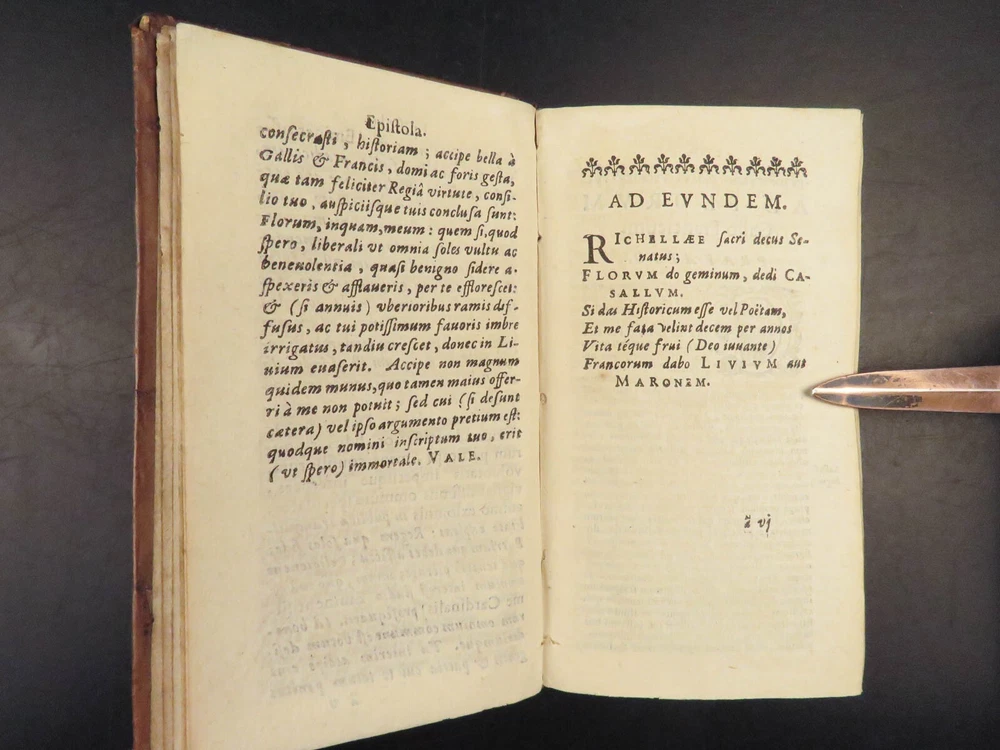 Epiſtola.
conſecraſti, hiſtoriam; accipe bella à
Gallis & Francis, domi ac foris geſta,
quæ tam feliciter Regiâ virtute, conſi-
lio tuo, auſpiciiſque tuis concluſa ſunt:
Florum, inquam, meum: quem ſi, quod
ſpero, liberali vt omnia ſoles vultu ac
beneuolentia, quaſi benigno ſidere a-
ſpexeris & afflaueris, per te effloreſcet:
& (ſi annuis) vberioribus ramis dif-
fuſus, ac tui potiſſimum fauoris imbre
irrigatus, tandiu creſcet, donec in Li-
uium euaſerit. Accipe non magnum
quidem munus, quo tamen maius offer-
ri à me non potuit; ſed cui (ſi deſunt
cætera) vel ipſo argumento pretium eſt:
quodque nomini inſcriptum tuo, erit
(vt ſpero) immortale. VALE.
AD EVNDEM.
RICHELLÆE ſacri decus Se-
natus;
FLORVM do geminum, dedi CA-
SALLVM.
Si das Hiſtoricum eſſe vel Poëtam,
Et me fata velint decem per annos
Vita téque frui (Deo iuuante)
Francorum dabo LIVIVM aut
MARONEM.
ã vj